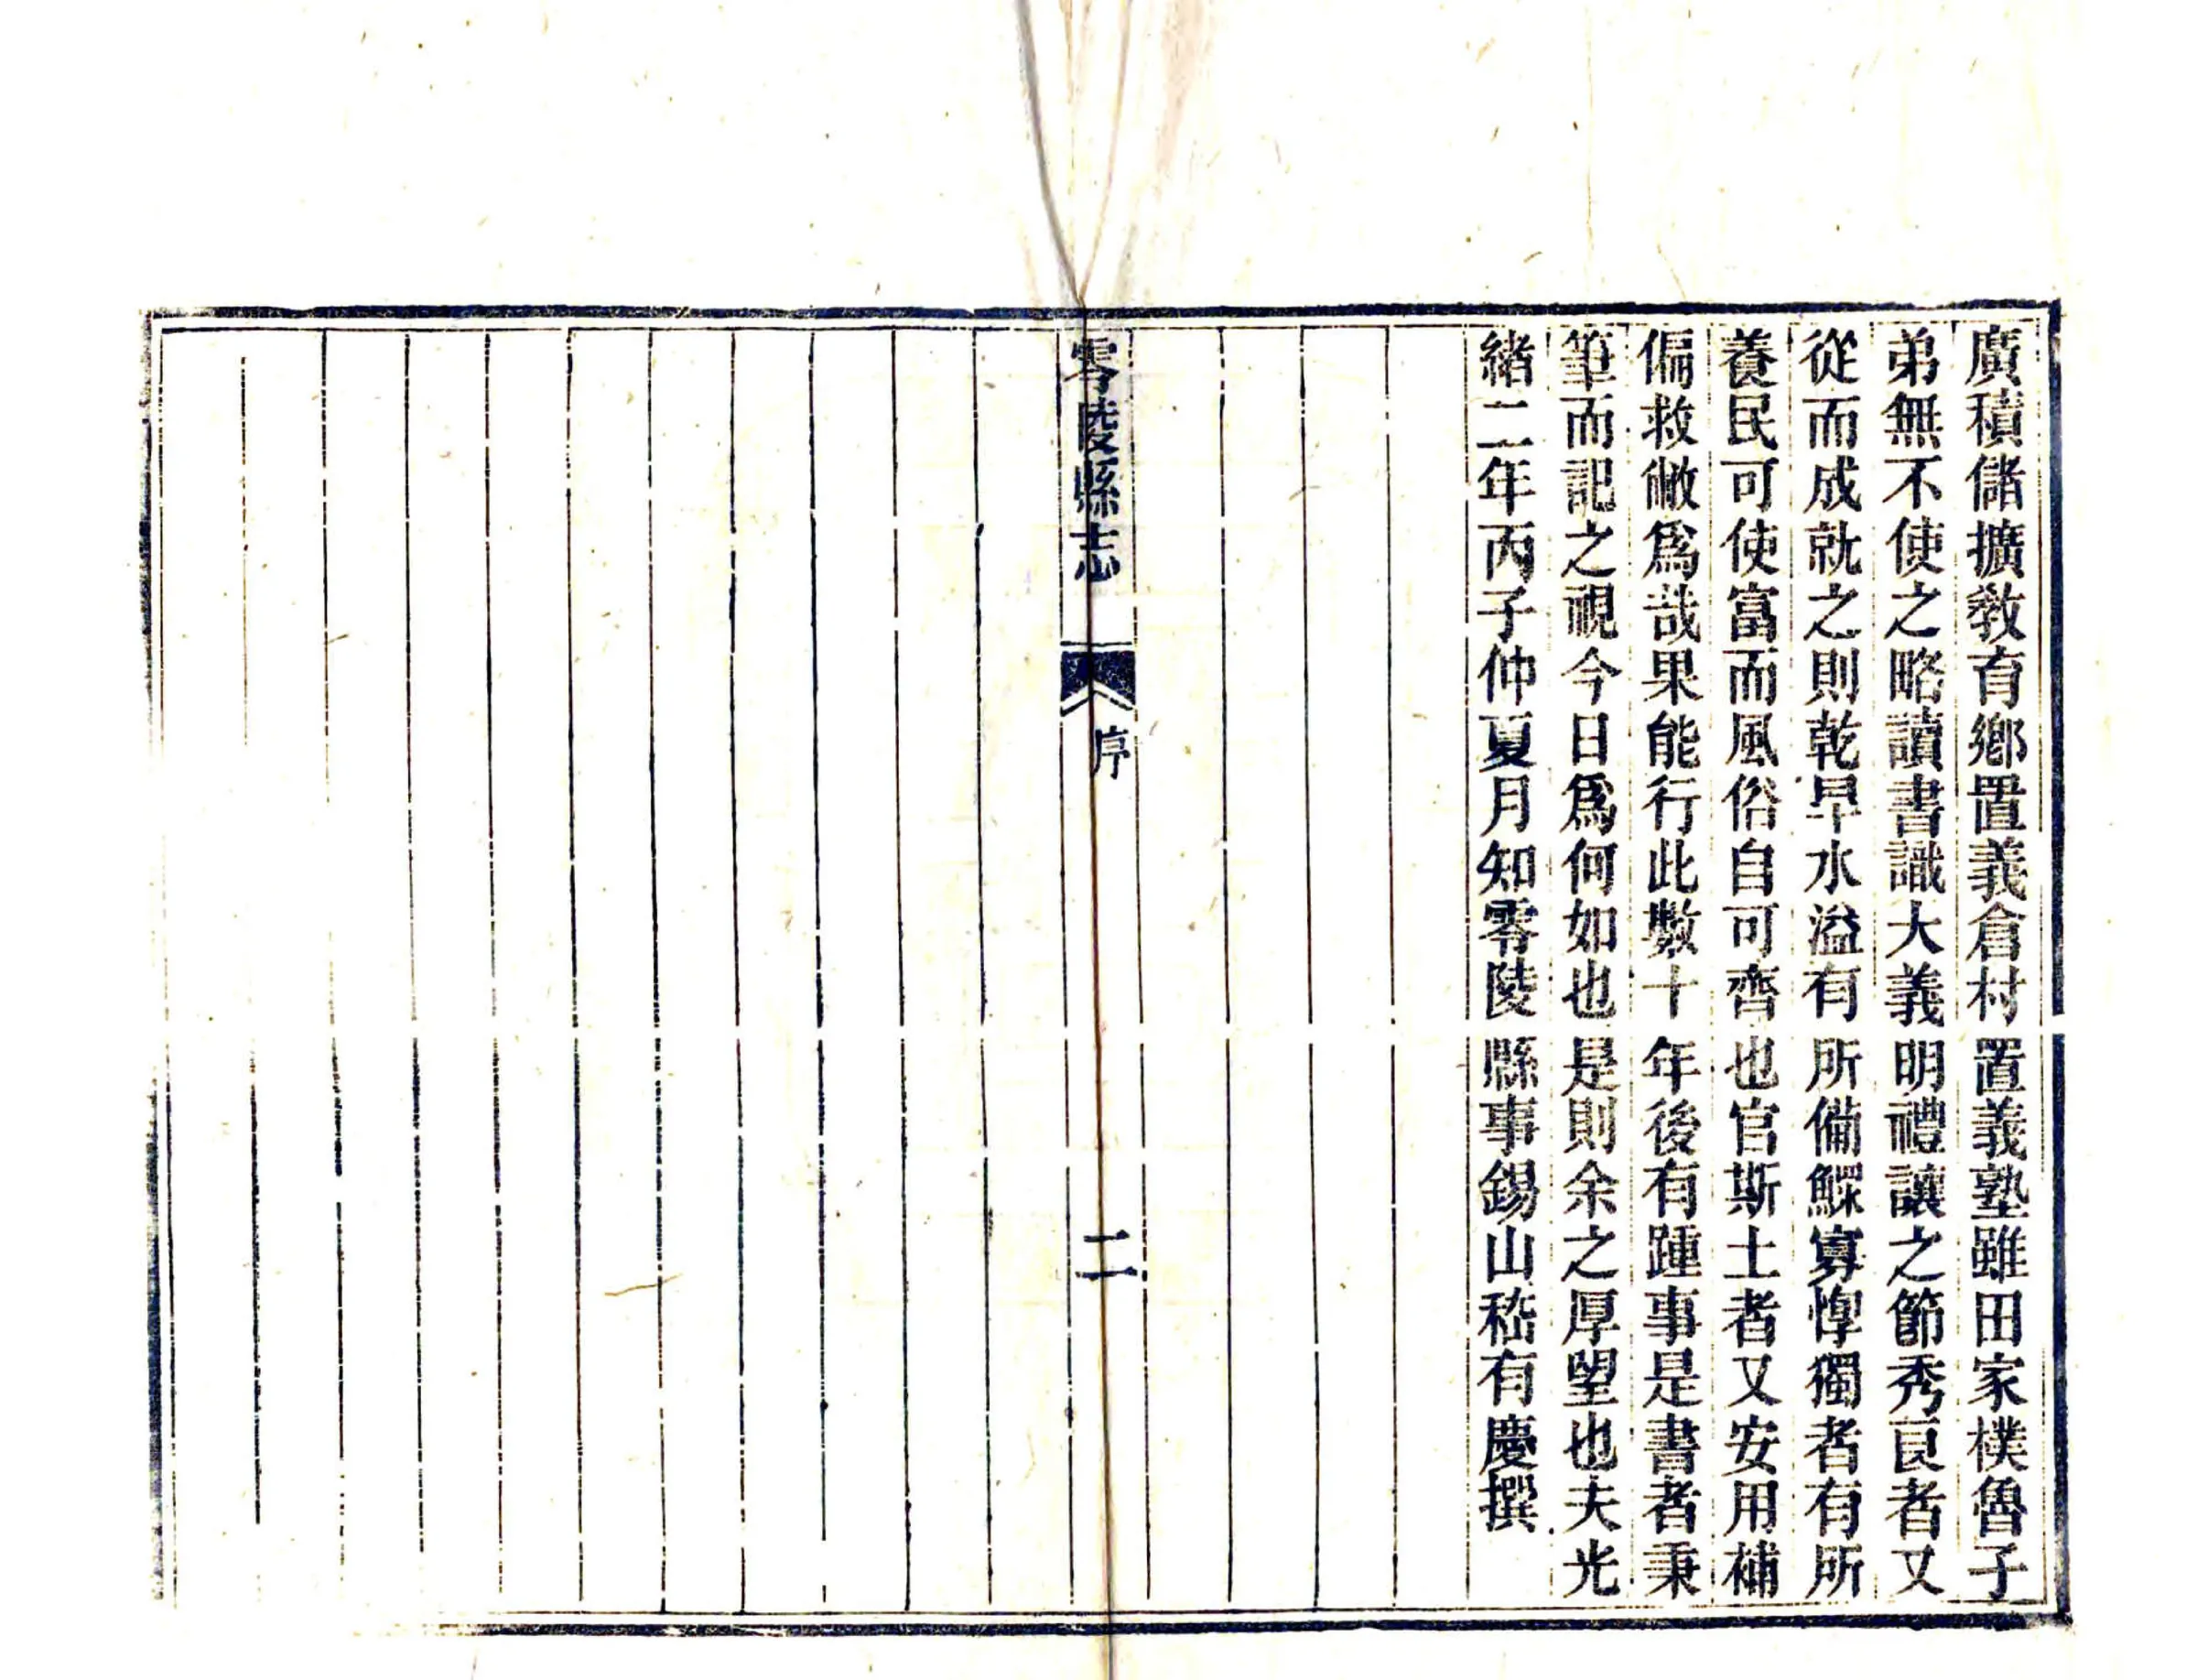 廣積儲擴敎育鄉置義倉村置義塾雖田家樸魯子
弟無不使之略讀書識大義明禮讓之節秀良者又
從而成就之則乾旱水溢有所備鰥寡惸獨者有所
養民可使富而風俗自可齊也官斯土者又安用補
偏救敝爲哉果能行此數十年後有踵事是書者秉
筆而記之視今日爲何如也是則余之厚望也夫光
緖二年丙子仲夏月知零陵縣事錫山嵇有慶撰
零陵縣志
序
二